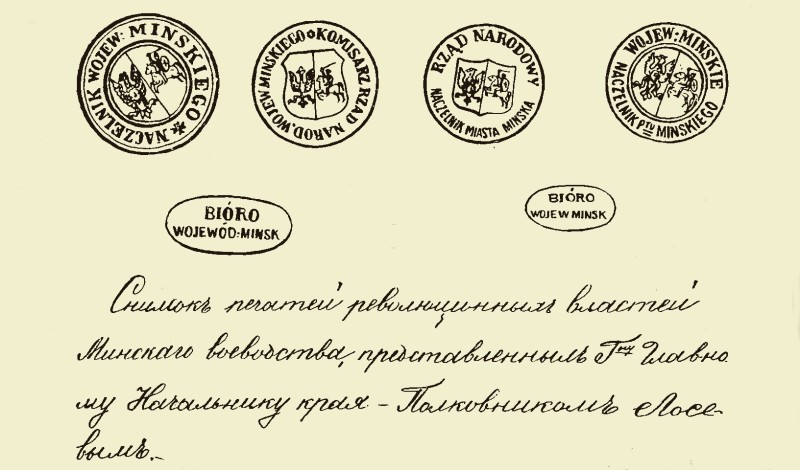 NACZELNIK WOJEW: MINSKIEGO
KOMISARZ RZĄD NAROD. WOJEW MINSKIEGO
RZĄD NARODOWY
NACZELNIK MIASTA MIŃSKA
WOJEW: MIŃSKIE
NACZELNIK PTU MINSKIEGO
BIÓRO
WOJEWÓD: MINSK
BIÓRO
WOJEW MINSK
Снимокъ печатей революціонныхъ властей
Минскаго воеводства, представленнымъ Гну Главно
му Начальнику края – Полковникомъ Лосе-
вымъ.–